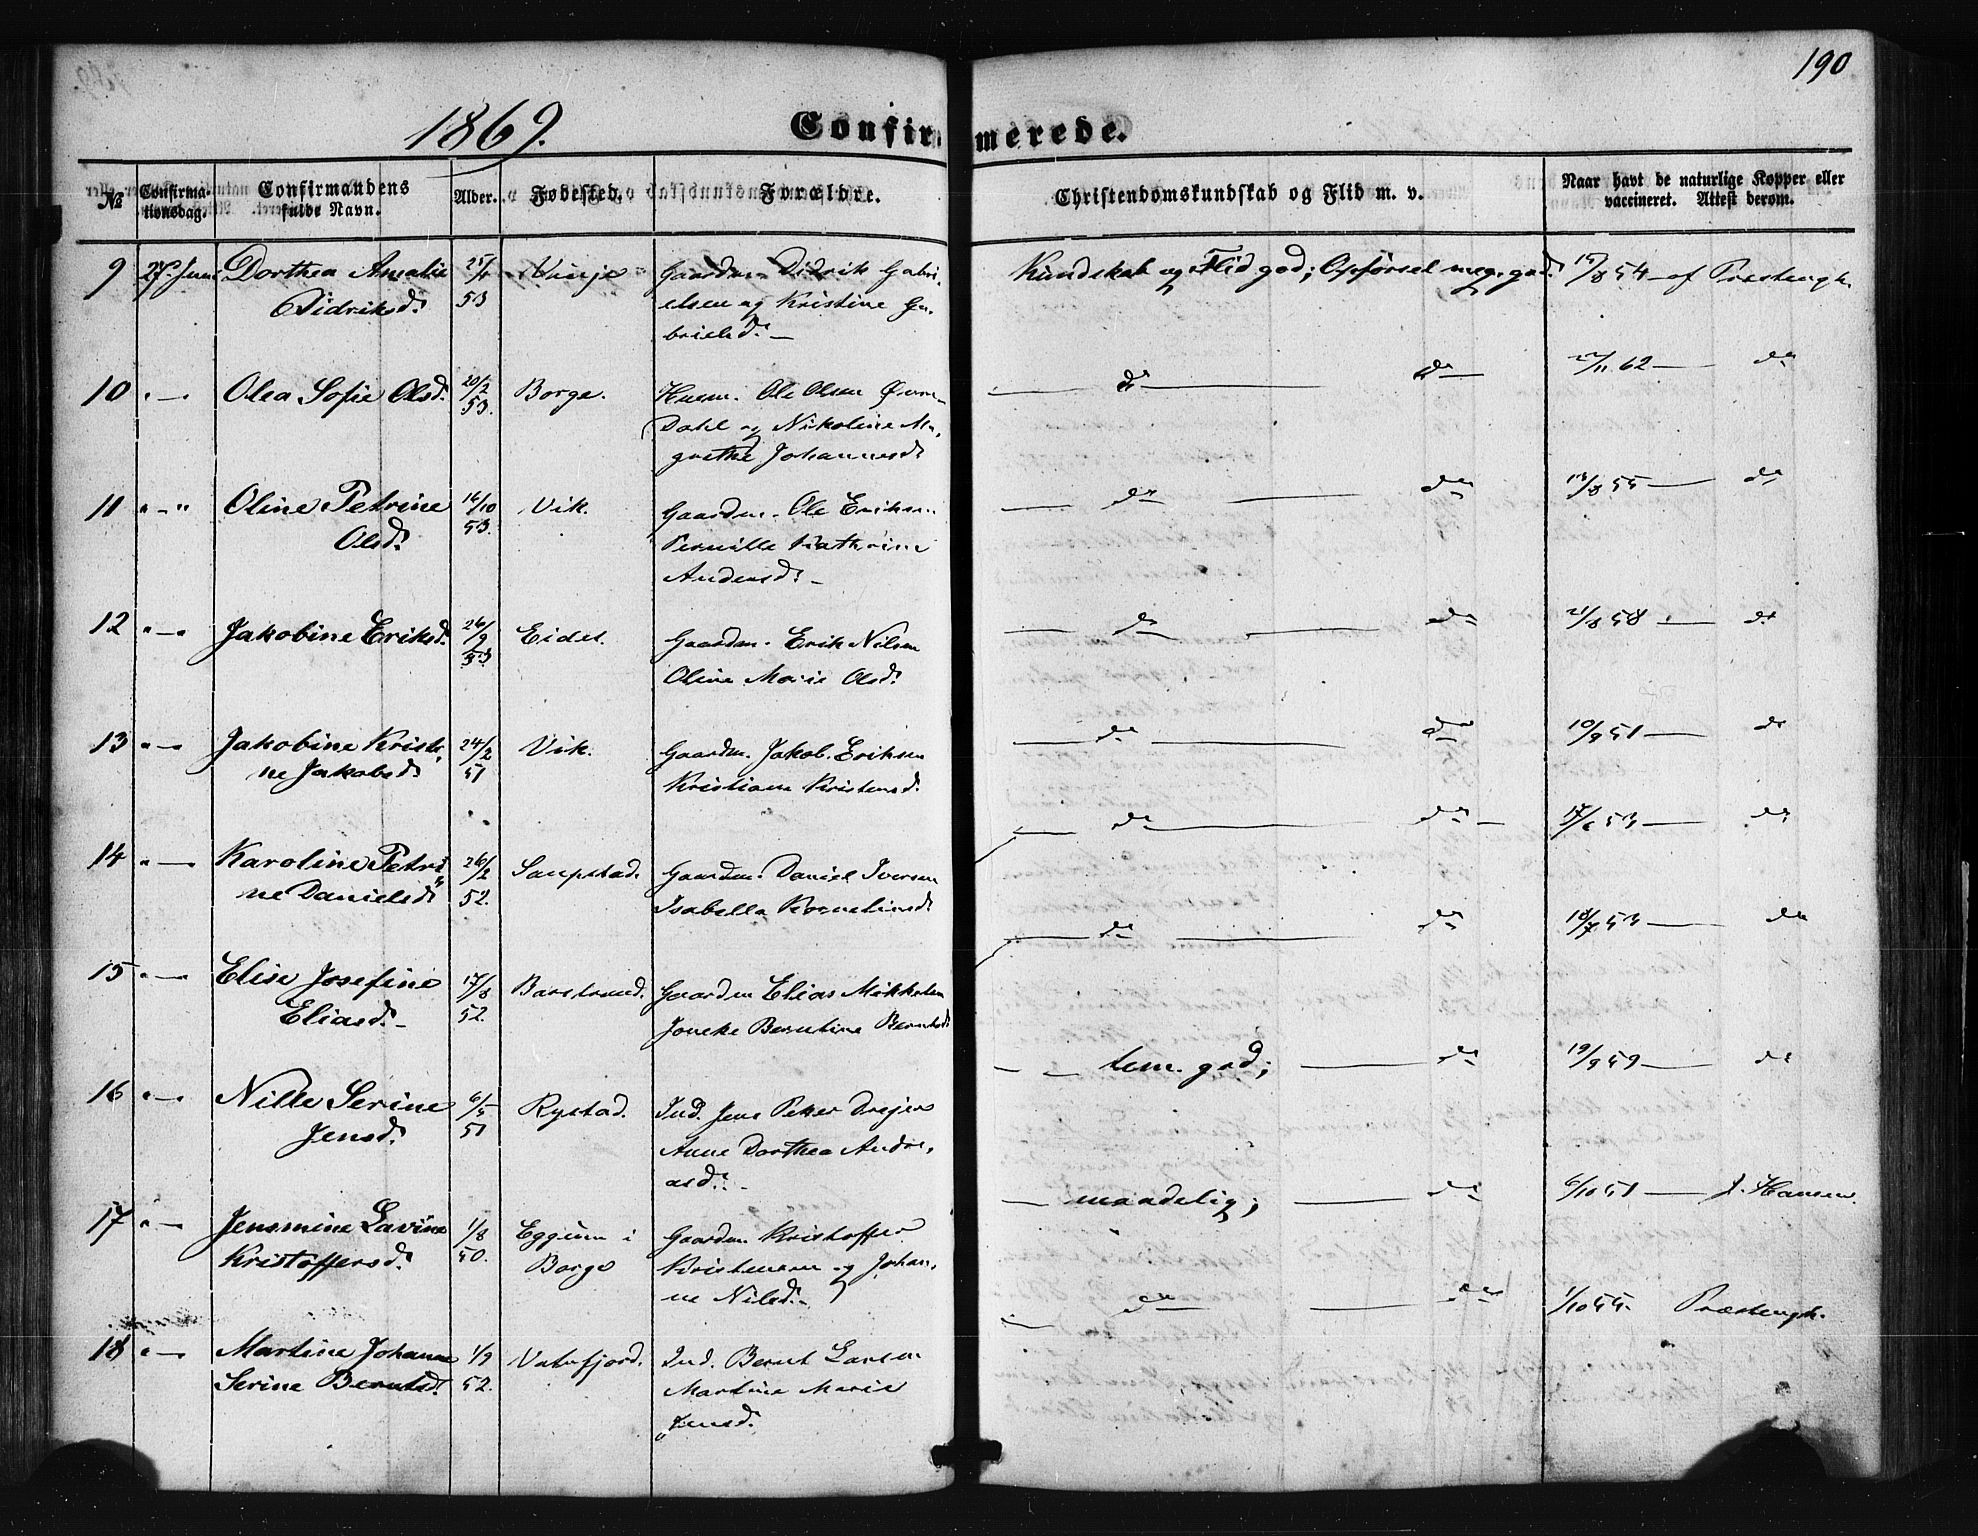 190
1869. Confirmerede.
№ Confirmationsdag. Confirmandens fulde Navn. Alder. Fødested. Forældre. Christendomskundskab og Flid m. v. Naar havt de naturlige Kopper eller vaccineret. Attest derom.
9 27. Juni Dorthea Amalie 25/1 Vinje Gaardm. Didrik Gabri- Kundskab og Flid god; Opførsel meg. god. 54 af Præstengh.
Didriksd. 53 elsen og Kristine Ga-
brielsd. —
10 " — Olea Sofie Olsd. 20/2 Borge. Husm. Ole Olsen Øvre- — do — do — /11 62 — do
53. Dahl og Nikoline Ma-
grethe Johannesd.
11 " — " Oline Petrine 16/10 Vik. Gaardm. Ole Eriksen — do — do 13/8 55 — do
Olsd. 53. Pernille Kathrine
Andersd. —
12 " — Jakobine Eriksd. 26/9 Eides. Gaardm. Erik Nilsen — do — do 21/8 58 — do
53. Oline Marie Olsd.
13 " — Jakobine Kristi- 24/2 Vik. Gaardm. Jakob Eriksen — do — do 10/9 51 — do
ne Jakobsd. 51 Kristiane Kristensd.
14 " — Karoline Petri- 26/2 Saupstad. Gaardm. Daniel Iversen — do — do — 17/6 53 — do
ne Danielsd. 52. Isabella Korneliusd.
15 " — Elise Josefine 17/8 Barstrand. Gaardm Elias Mikkelsen — do — do 18/7 53 — do
Eliasd. — 52. Joneke Berntine Berntsd.
16 " — Nille Serine 6/5 Rystad. Ind. Jens Peter Drejer — — tem. god; — do 19/9 59 — do
Jensd. 51 Anne Dorthea Andre-
asd. —
17 " — Jensmine Lavine 1/8 Eggum i Gaardm Kristoffer — maadelig; — do 6/10 51 — J. Hansen.
Kristoffersd. 50. Borge Kristensen og Johan-
ne Nilsd. —
18 " — Martine Johanne 1/9 Vatnfjord. Ind. Bernt Larsen — do — do 1/10 55. Præstengh.
Serine Berntsd. 52. Martine Marie
Jensd.